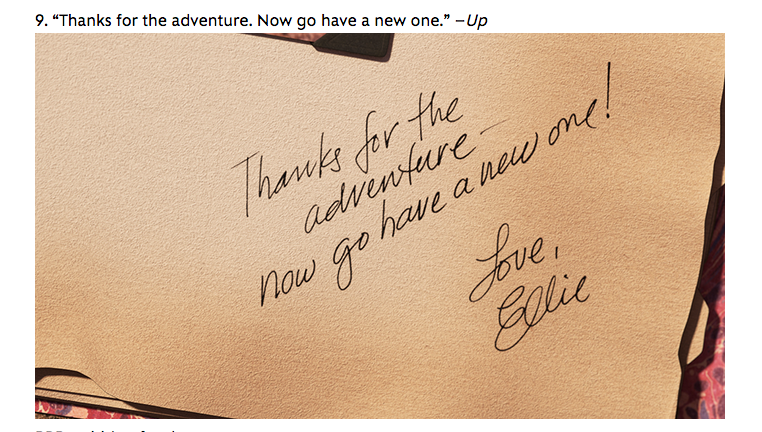 9. “Thanks for the adventure. Now go have a new one.” –Up
Thanks for the
adventure –
now go have a new one!
Love,
Ellie